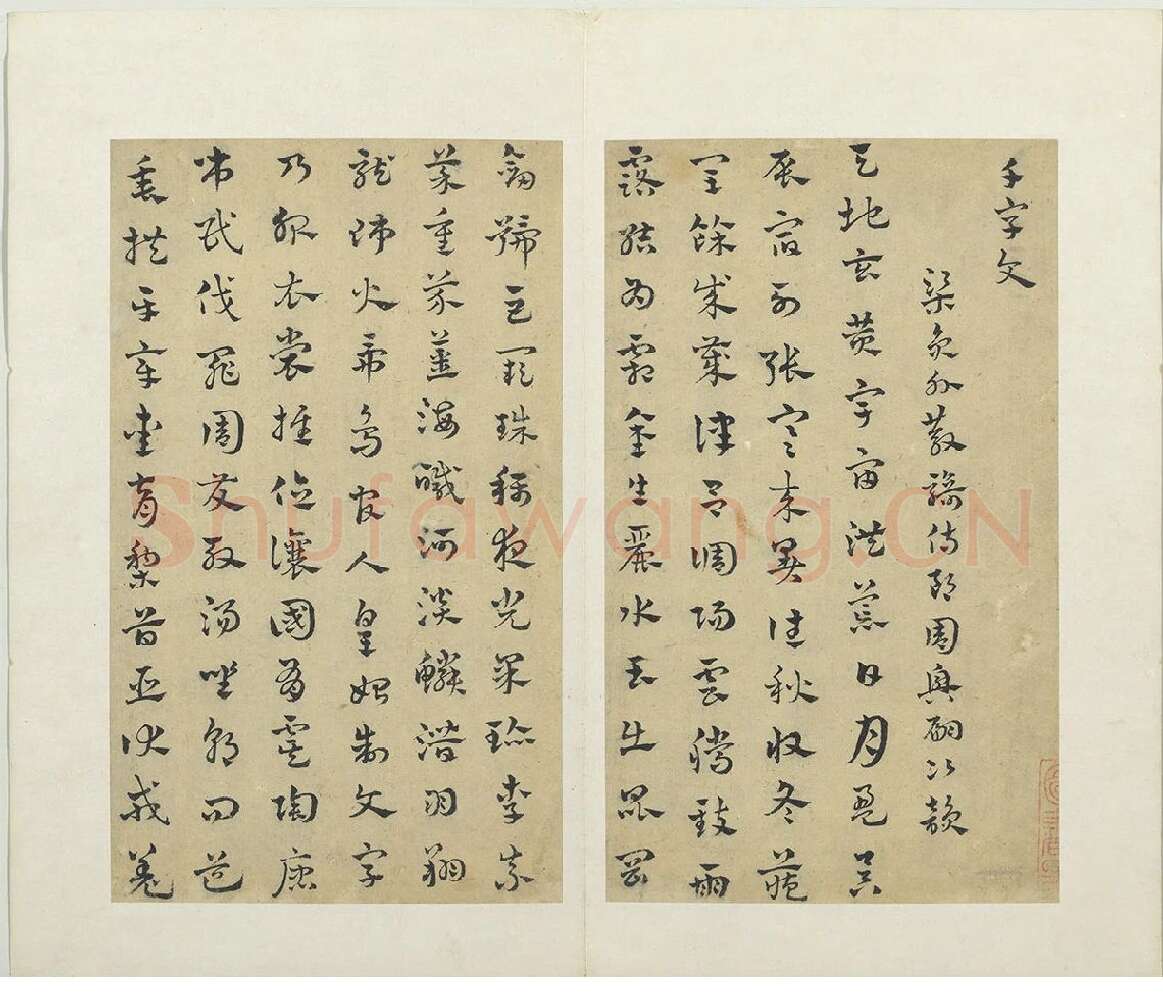 千字文
梁員外散騎侍郎周興嗣次韻
天地玄黃宇宙洪荒日月盈昃
辰宿列張寒来暑往秋收冬蔵
閏餘成歲律呂調陽雲騰致雨
露結為霜金生麗水玉出崑岡
劒號巨闕珠稱夜光菓珍李柰
菜重芥薑海醎河淡鱗潛羽翔
龍師火帝鳥官人皇始制文字
乃服衣裳推位讓國有虞陶唐
吊民伐罪周發殷湯坐朝問道
垂拱平章愛育黎首臣伏戎羌
Shufawang.CN